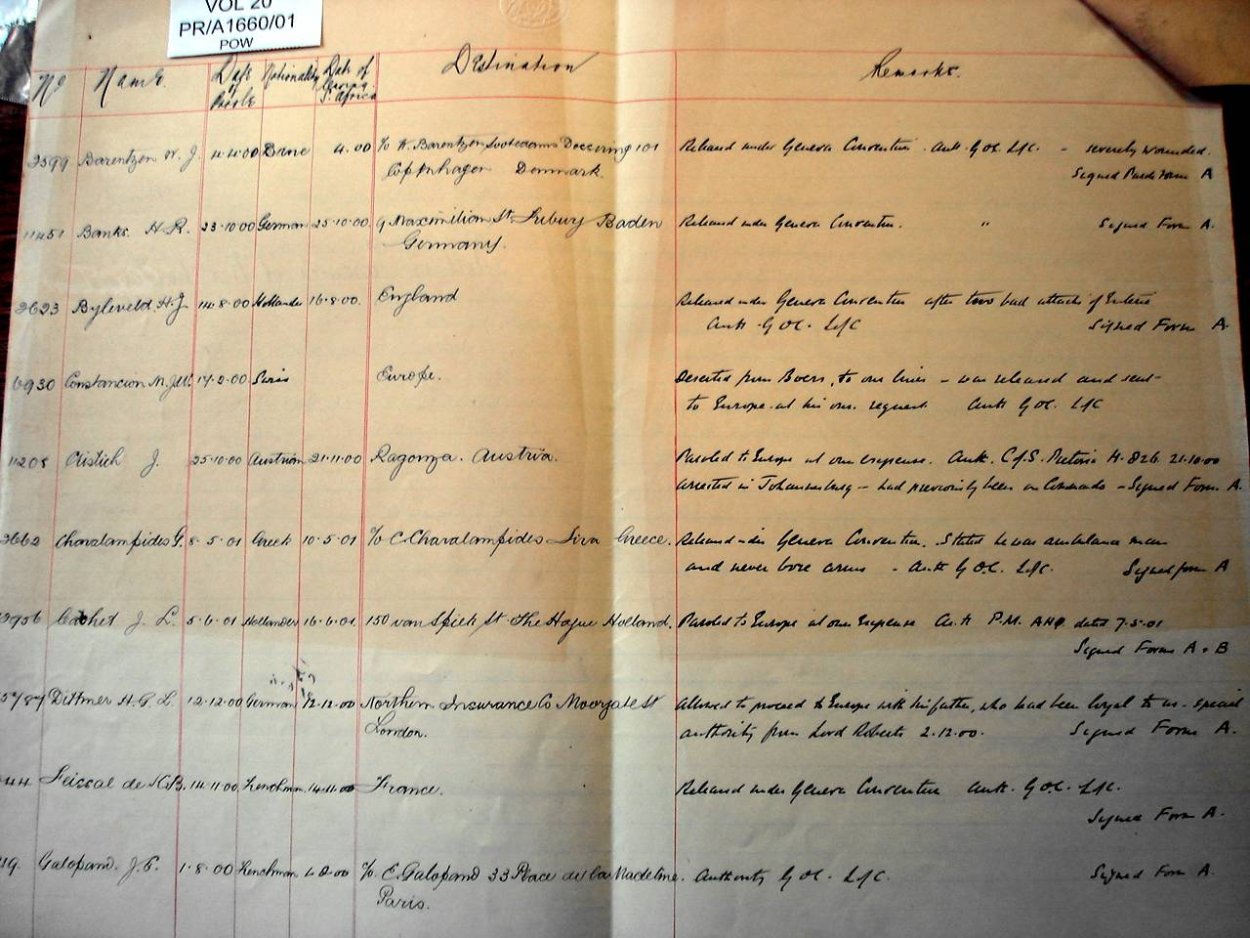 VOL 20
PR/A1660/01
POW
No Name Date of Parole Nationality Date of leaving S. Africa Destination Remarks.
2599 Barentzen W. J. 4.4.00 Dane 4.00 c/o W. Barentzen 101 Released under Geneva Convention. Auth. G.O.C. L/C. - severely wounded.
Copenhagen Denmark. Signed Parole Form A
11451 Banks. H R. 23.10.00 German 25.10.00. 9 Maximilian St. Baden Released under Geneva Convention. " Signed Form A.
Germany.
2623 Byleveld. H. J 14.8.00 Hollander 16.8.00. England Released under Geneva Convention after two bad attacks of Enteric
Auth. G.O.C. L/C Signed Form A.
6930 Constancon M. 17.9.00 Swiss Europe. Deserted from Boers, to our lines - was released and sent
to Europe at his own request Auth G.O.C. L/C
11208 J. 25.10.00 Austrian 21.11.00 Austria. Paroled to Europe at own expense. Auth. C of S. Pretoria 21.10.00
arrested in Johannesburg - had previously been on Commando - Signed Form A.
2662 Charalampides G. 8.5.01 Greek 10.5.01 c/o C. Charalampides Sira Greece. Released under Geneva Convention. States he was ambulance man
and never bore arms - Auth G.O.C. L/C. Signed form A
J. L. 5.6.01 Hollander 16.6.01 150 van Spiek St The Hague Holland. Paroled to Europe at own Expense Auth P.M. AHQ dated 7.5.01
Signed Forms A + B
Dittmer H. G. L. 12.12.00 German 12.12.00 Northern Insurance Co Moorgate St Allowed to proceed to Europe with his father, who had been loyal to us - special
London. authority from Lord Roberts 2.12.00. Signed Form A.
44 Feissal de K.B. 14.11.00 Frenchman 14.11.00 France. Released under Geneva Convention Auth. G.O.C. L/C.
Signed Form A.
19. Galopaud. J. E. 1.8.00 Frenchman c/o E. Galopaud 33 Place de la Madeline. Authority G.O.C. L/C. Signed Form A.
Paris.